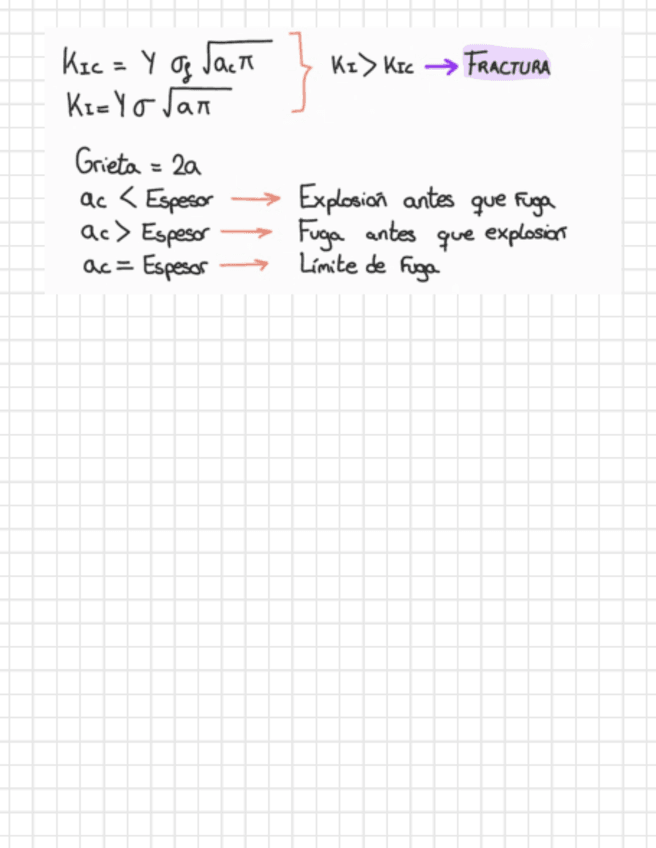 KIC = Y σf √acπ
KI = Y σ √aπ
KI > KIC → FRACTURA
Grieta = 2a
ac < Espesor → Explosión antes que Fuga
ac > Espesor → Fuga antes que explosión
ac = Espesor → Límite de Fuga